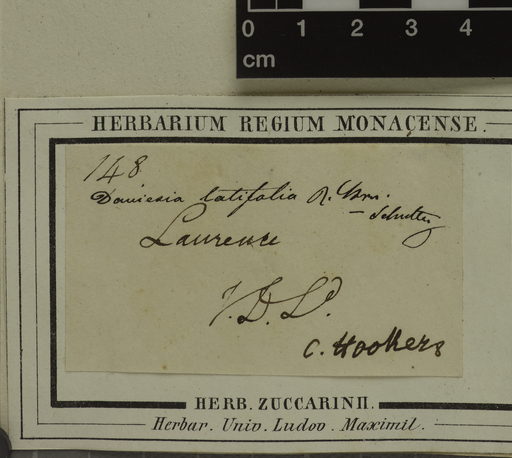 0 1 2 3 4
cm
HERBARIUM REGIUM MONAÇENSE.
148
Daviesia latifolia R. Brn.
– Schultz
Laurence
V. D. Ld.
C. Hookers
HERB. ZUCCARINII.
Herbar. Univ. Ludov. Maximil.